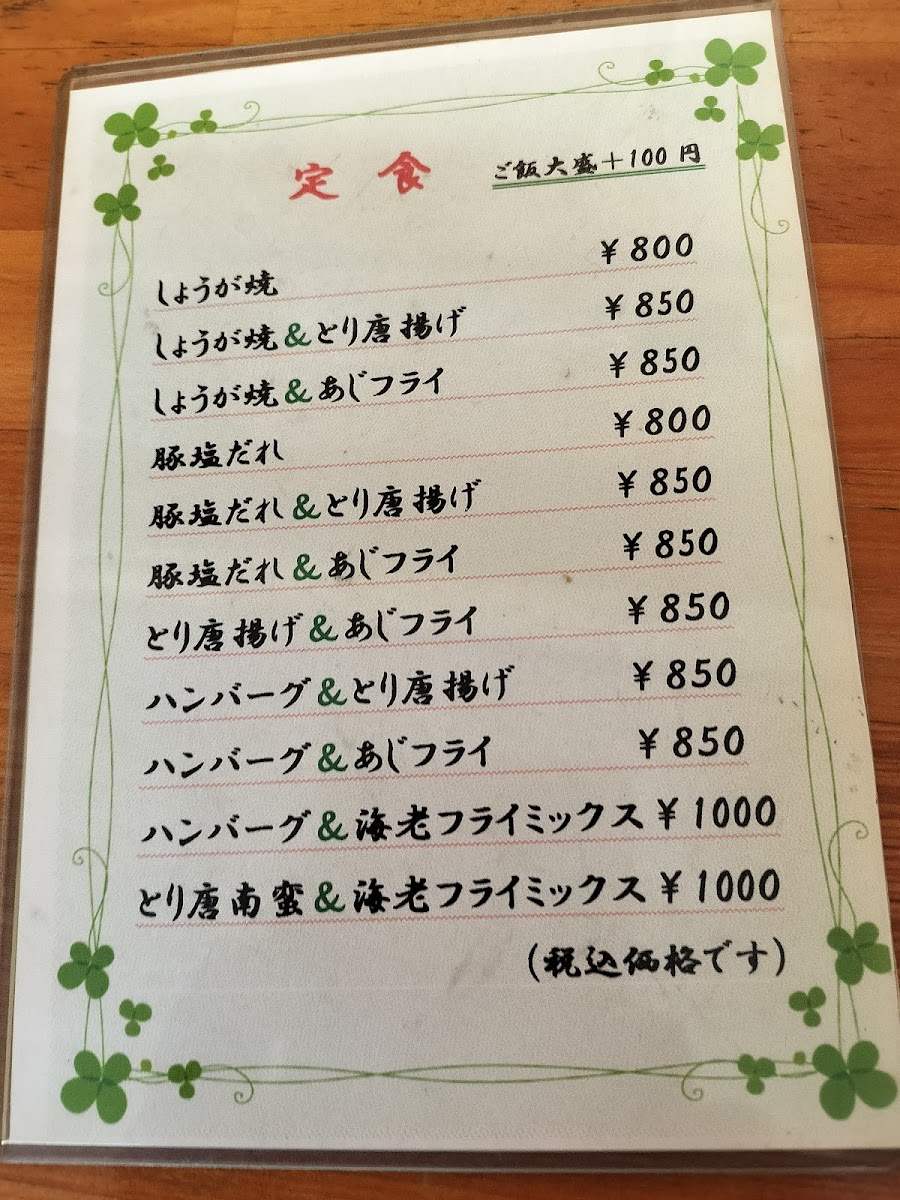 定食 ご飯大盛+100円
しょうが焼 ¥800
しょうが焼&とり唐揚げ ¥850
しょうが焼&あじフライ ¥850
豚塩だれ ¥800
豚塩だれ&とり唐揚げ ¥850
豚塩だれ&あじフライ ¥850
とり唐揚げ&あじフライ ¥850
ハンバーグ&とり唐揚げ ¥850
ハンバーグ&あじフライ ¥850
ハンバーグ&海老フライミックス ¥1000
とり唐南蛮&海老フライミックス ¥1000
(税込価格です)